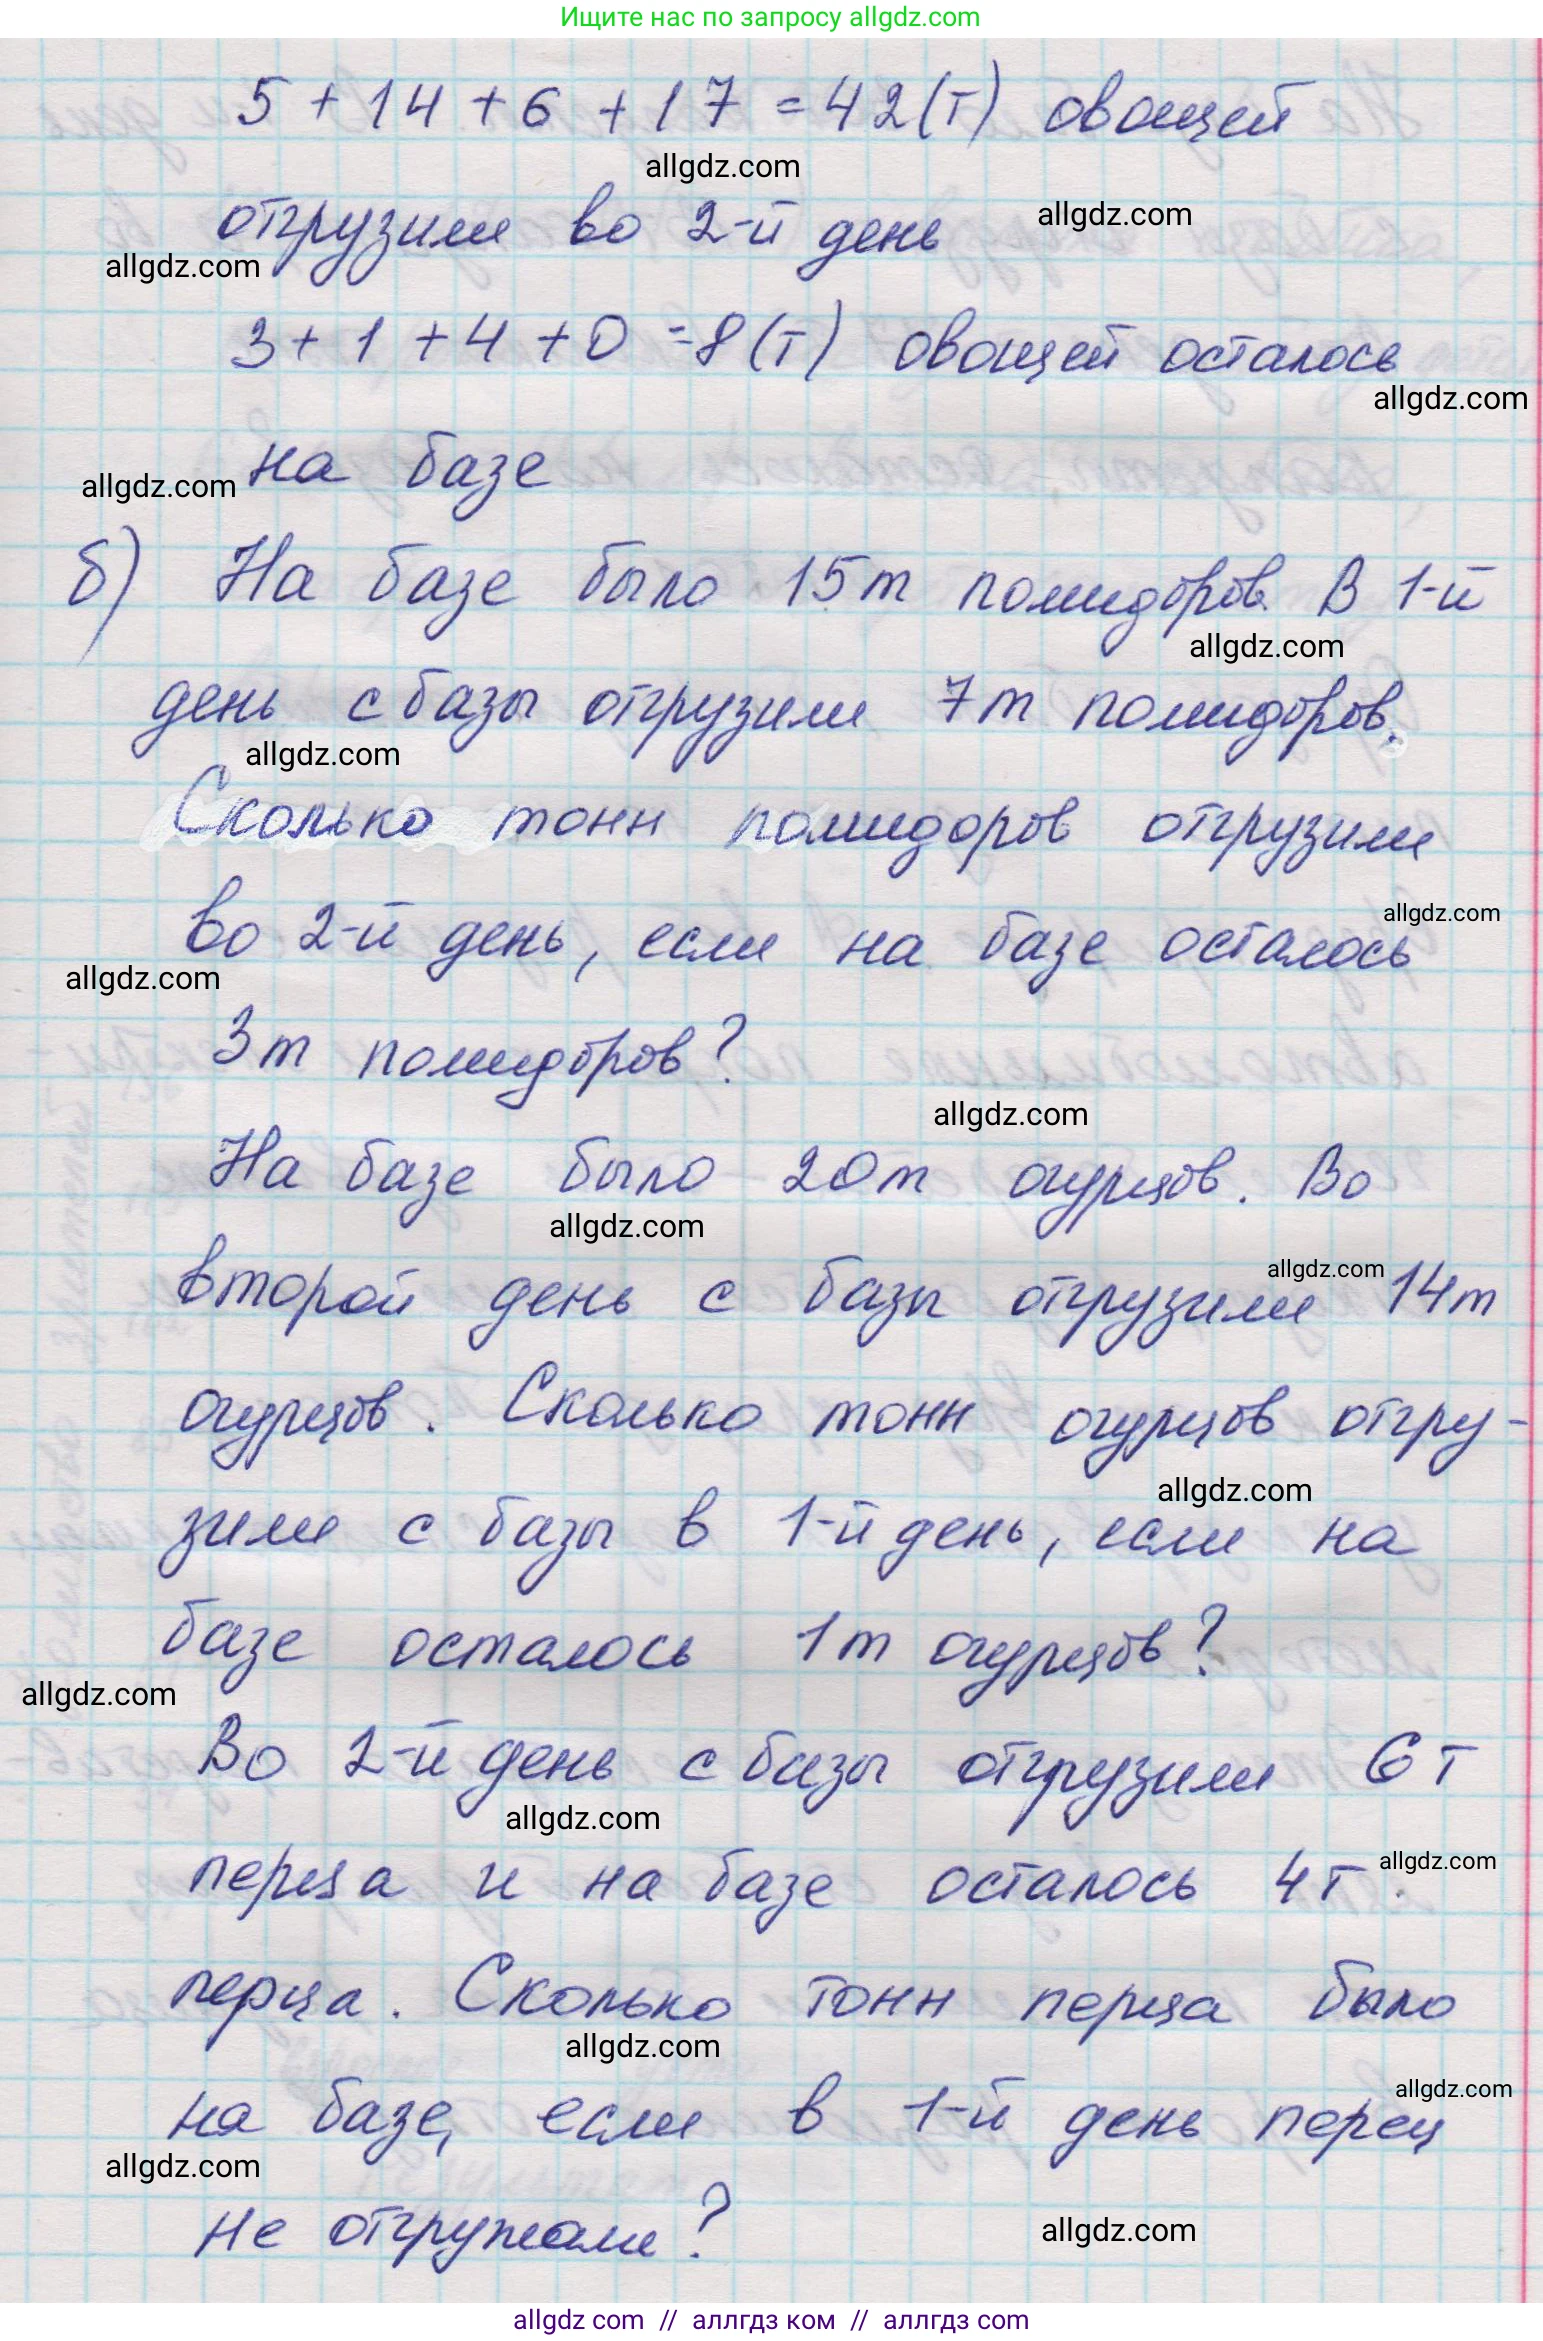 Ищите нас по запросу allgdz.com
5 + 14 + 6 + 17 = 42 (т) овощей
allgdz.com
отгрузили во 2-й день
allgdz.com
allgdz.com
3 + 1 + 4 + 0 = 8 (т) овощей осталось
allgdz.com
на базе
allgdz.com
б) На базе было 15т помидоров. В 1-й
allgdz.com
день с базы отгрузили 7т помидоров.
allgdz.com
Сколько тонн помидоров отгрузили
allgdz.com
во 2-й день, если на базе осталось
allgdz.com
3т помидоров?
allgdz.com
На базе было 20т огурцов. Во
allgdz.com
allgdz.com
второй день с базы отгрузили 14т
огурцов. Сколько тонн огурцов отгру-
allgdz.com
зили с базы в 1-й день, если на
базе осталось 1т огурцов?
allgdz.com
Во 2-й день с базы отгрузили 6т
allgdz.com
перца и на базе осталось 4т
allgdz.com
перца. Сколько тонн перца было
allgdz.com
allgdz.com
на базе, если в 1-й день перец
allgdz.com
не отгружали?
allgdz.com
allgdz com // аллгдз ком // аллгдз com